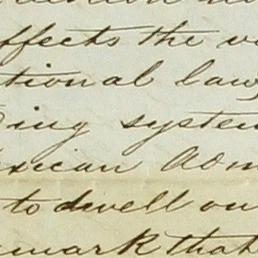 ffects the
tional law,
ing system
xican Adm
to dwell on
mark that